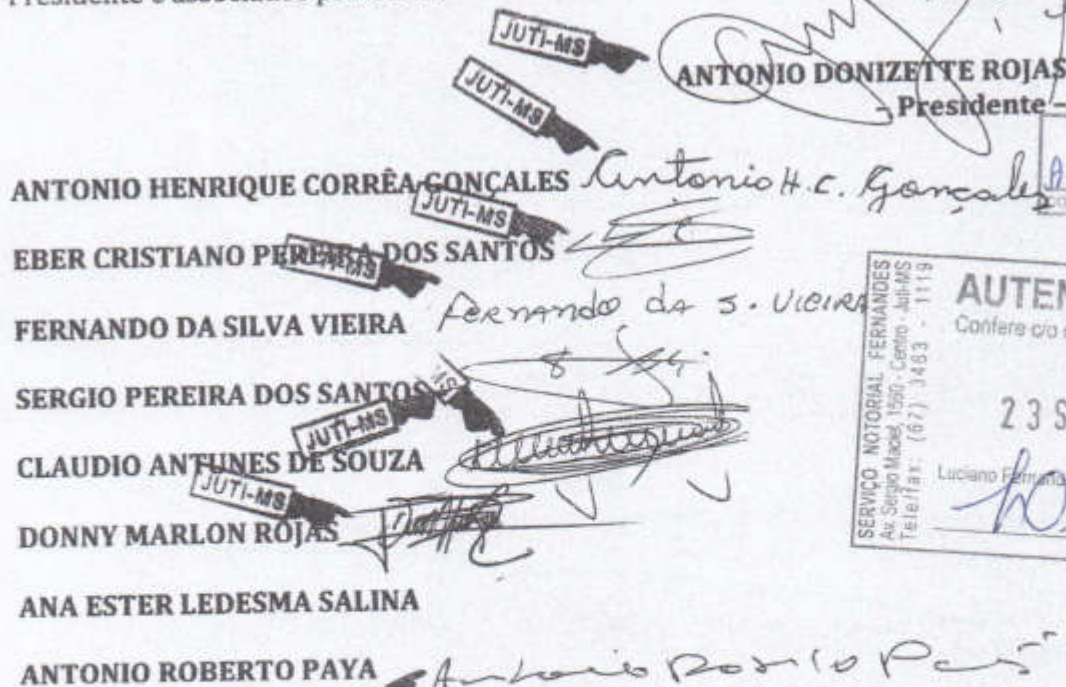 Presidente e associados
JUTI-MS
ANTONIO DONIZETTE ROJAS
– Presidente –
JUTI-MS
ANTONIO HENRIQUE CORRÊA GONÇALES Antonio H. C. Gonçales
JUTI-MS
EBER CRISTIANO PEREIRA DOS SANTOS
JUTI-MS
FERNANDO DA SILVA VIEIRA Fernando da S. Vieira
SERGIO PEREIRA DOS SANTOS
JUTI-MS
CLAUDIO ANTUNES DE SOUZA
JUTI-MS
DONNY MARLON ROJAS
ANA ESTER LEDESMA SALINA
ANTONIO ROBERTO PAYA Antonio
SERVIÇO NOTORIAL FERNANDES
Av. Sérgio Maciel, 1560 - Centro - Juti-MS
Telefax: (67) 3463 - 1119
AUTEN
Confere c/o
23 S
Luciano